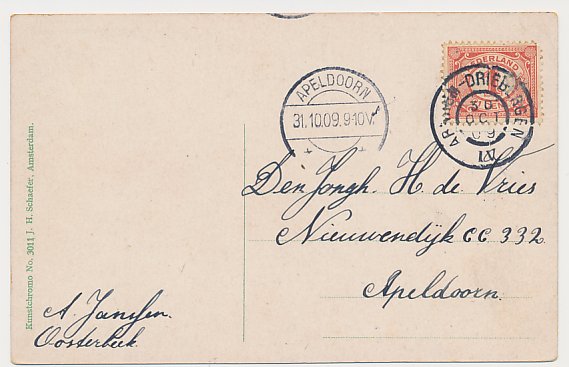 NEDERLAND
ARNHEM-DRIEBERGEN
30
OCT
09
IV
APELDOORN
31.10.09.9-10V.
Den Jongh. H. de Vries
Nieuwendijk CC 332
Apeldoorn.
A. Janssen.
Oosterbeek.
Kunstchromo No. 3011 J. H. Schaefer, Amsterdam.